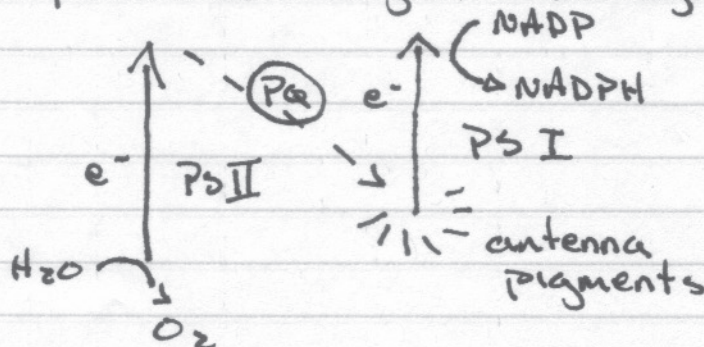 NADP
NADPH
PQ
e-
PS I
e-
PS II
antenna
pigments
H2O
O2